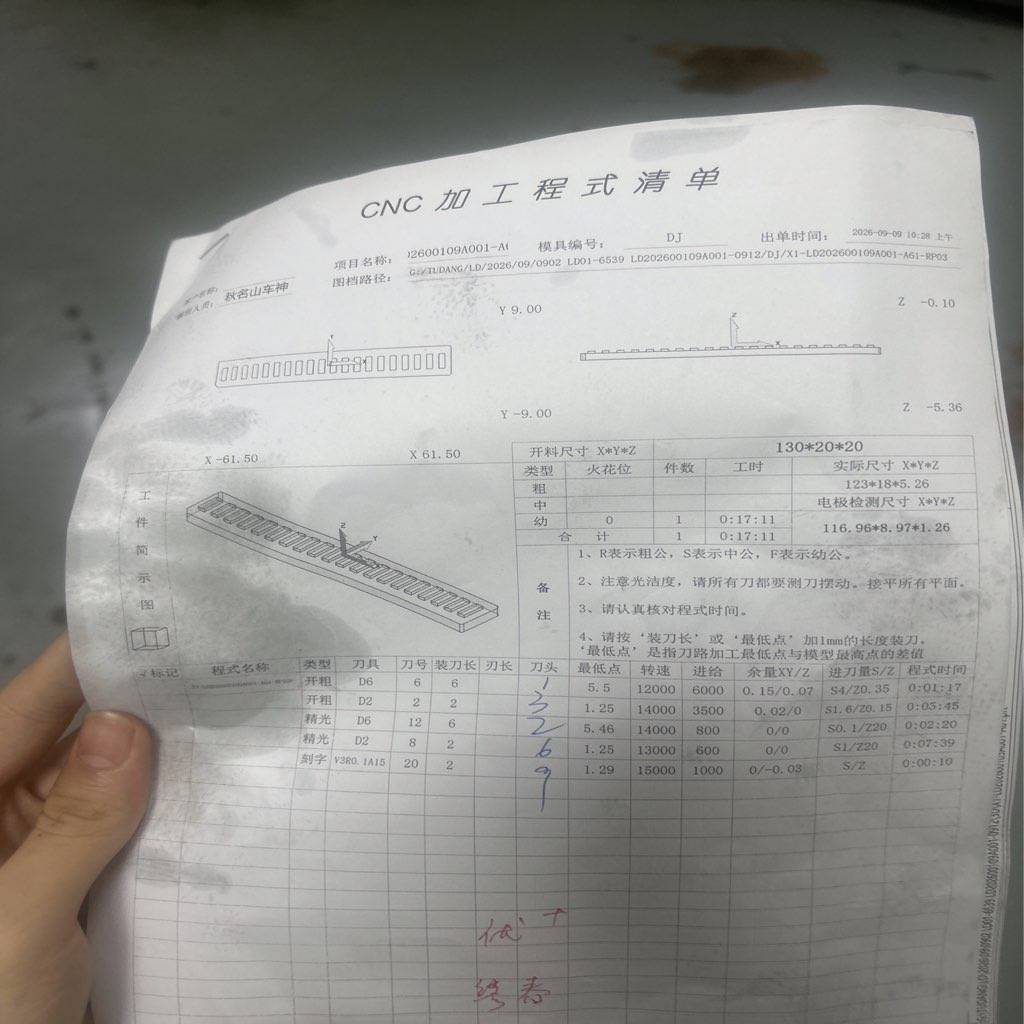 CNC 加工程式清单
项目名称: 02600109A001-A 模具编号: DJ 出单时间: 2026-09-09 10:28 上午
图档路径: G:/TUDANG/LD/2026/09/0902 LD01-6539 LD202600109A001-0912/DJ/X1-LD202600109A001-A61-RP03
秋名山车神
Y 9.00
Z -0.10
Y
X
Z
X
Y -9.00
Z -5.36
X -61.50 X 61.50
工件简示图
Z
Y
开料尺寸 X*Y*Z 130*20*20
类型 火花位 件数 工时 实际尺寸 X*Y*Z
粗 123*18*5.26
中 电极检测尺寸 X*Y*Z
幼 0 1 0:17:11 116.96*8.97*1.26
合 计 1 0:17:11
备注
1、R表示粗公，S表示中公，F表示幼公。
2、注意光洁度，请所有刀都要测刀摆动。接平所有平面。
3、请认真核对程式时间。
4、请按‘装刀长’或‘最低点’加1mm的长度装刀。
‘最低点’是指刀路加工最低点与模型最高点的差值
√标记 程式名称 类型 刀具 刀号 装刀长 刃长 刀头 最低点 转速 进给 余量XY/Z 进刀量S/Z 程式时间
开粗 D6 6 6 1 5.5 12000 6000 0.15/0.07 S4/Z0.35 0:01:17
开粗 D2 2 2 3 1.25 14000 3500 0.02/0 S1.6/Z0.15 0:05:45
精光 D6 12 6 2 5.46 14000 800 0/0 S0.1/Z20 0:02:20
精光 D2 8 2 6 1.25 13000 600 0/0 S1/Z20 0:07:39
刻字 V3R0.1A15 20 2 9 1.29 15000 1000 0/-0.03 S/Z 0:00:10